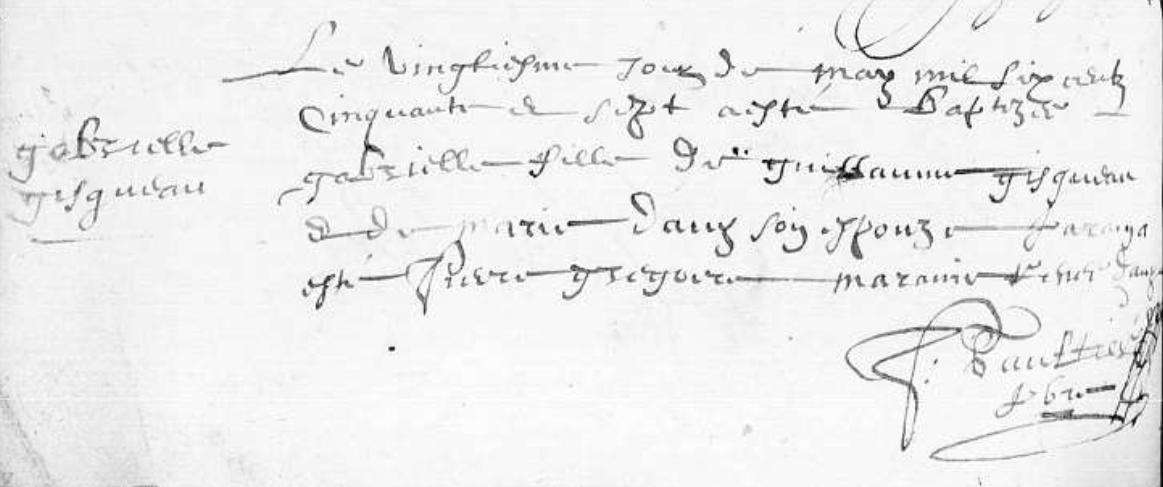 Le vingtiesme jour de may mil six centz
cinquante et sept a esté Baptizée
gabrielle
gisqueau
gabrielle fille de guillaume gisqueau
et de marie dauy son espouze parain a
esté Pierre gregoire maraine dauy
pbre